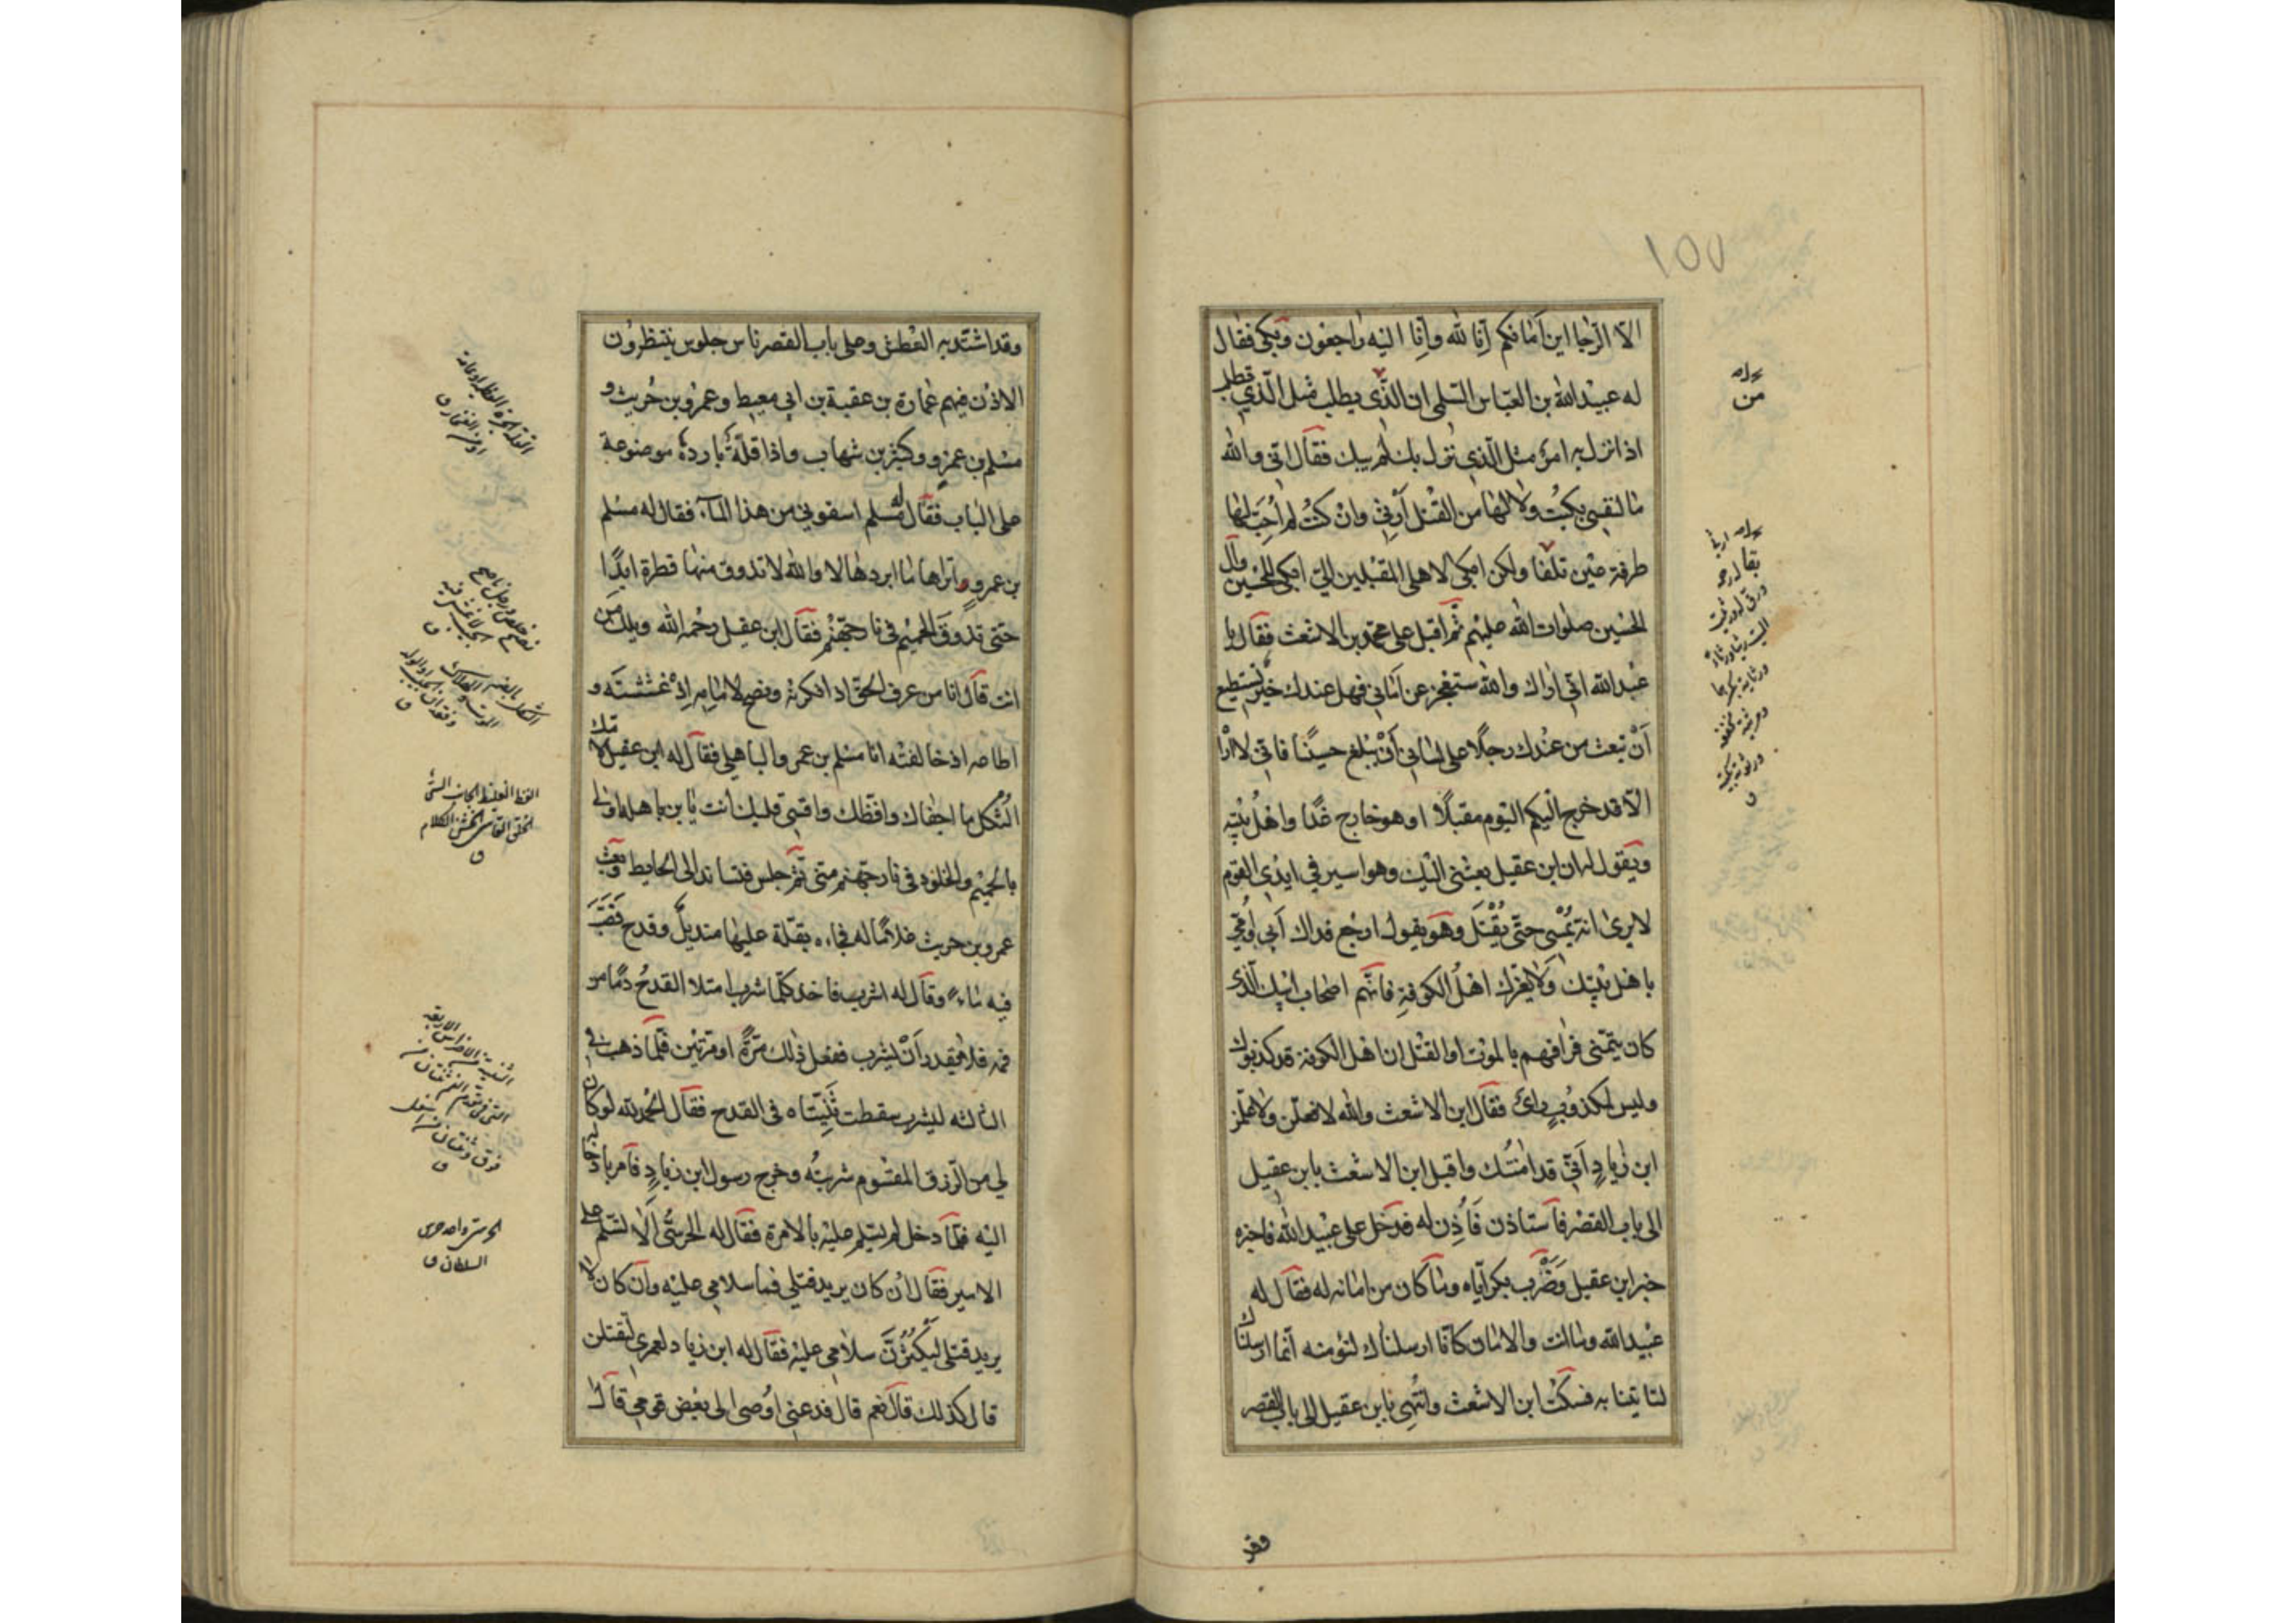 ١٥٧
الا الرجا اين امانكم انا لله وانا اليه راجعون وبكى فقال
له عبيد الله بن العباس السلمي ان الذي يطلب مثل الذي تطلب
اذا نزل به امر مثل الذي نزل بك لم يبك فقال اني والله
ما لنفسي بكيت ولا لها من القتل ارثي وان كنت لم احب لها
طرفة عين تلفا ولكن ابكي لاهلي المقبلين الي ابكي للحسين وآل
الحسين صلوات الله عليهم ثم اقبل على محمد بن الاشعث فقال يا
عبد الله اني اراك والله ستعجز عن اماني فهل عندك خير تستطيع
أن تبعث من عندك رجلا على لساني أن يبلغ حسينا فاني لا اراه
الا قد خرج اليكم اليوم مقبلا او هو خارج غدا واهل بيته
ويقول له ان ابن عقيل بعثني اليك وهو اسير في ايدي القوم
لا يرى انه يمسي حتى يقتل وهو يقول ارجع فداك أبي وأمي
باهل بيتك ولا يغرك اهل الكوفة فانهم اصحاب ابيك الذي
كان يتمنى فراقهم بالموت او القتل ان اهل الكوفة قد كذبوك
وليس لمكذوب رأي فقال ابن الاشعث والله لافعلن ولاعلمن
ابن زياد اني قد امنتك واقبل ابن الاشعث بابن عقيل
الى باب القصر فاستاذن فأذن له فدخل على عبيد الله فاخبره
خبر ابن عقيل وضرب بكر اياه وما كان من امانه له فقال له
عبيد الله وما انت والامان كانا ارسلناك لتؤمنه انما ارسلناك
لتاتينا به فسكت ابن الاشعث وانتهى بابن عقيل الى باب القصر
وقد
قوله
من
وقد اشتد به العطش وعلى باب القصر ناس جلوس ينتظرون
الاذن فيهم عمارة بن عقبة بن ابي معيط وعمرو بن حريث و
مسلم بن عمرو وكثير بن شهاب واذا قلة باردة موضوعة
على الباب فقال مسلم اسقوني من هذا الماء فقال له مسلم
بن عمرو اتراها ما ابردها لا والله لا تذوق منها قطرة ابدا
حتى تذوق الحميم في نار جهنم فقال ابن عقيل رحمه الله ويلك من
انت قال انا من عرف الحق اذ انكرته ونصح لامامه اذ غششته و
اطاعه اذ خالفته انا مسلم بن عمرو الباهلي فقال له ابن عقيل لامك
الثكل ما اجفاك وافظك واقسى قلبك انت يا بن باهلة اولى
بالحميم والخلود في نار جهنم مني ثم جلس فتساند الى الحايط وبعث
عمرو بن حريث غلاما له فجاءه بقلة عليها منديل وقدح فصب
فيه ماء وقال له اشرب فاخذ كلما شرب امتلا القدح دما من
فمه فلا يقدر أن يشرب ففعل ذلك مرة او مرتين فلما ذهب في
الثالثة ليشرب سقطت ثنيتاه في القدح فقال الحمد لله لو كان
لي من الرزق المقسوم شربته وخرج رسول ابن زياد فامر بادخاله
اليه فلما دخل لم يسلم عليه بالامرة فقال له الحرسي ألا تسلم على
الامير فقال ان كان يريد قتلي فما سلامي عليه وان كان لا
يريد قتلي ليكثرن سلامي عليه فقال له ابن زياد لعمري لتقتلن
قال كذلك قال نعم قال فدعني اوصي الى بعض قومي قال
الفظ الغليظ الجانب السيئ
الخلق القاسي الخشن الكلام
ق
الحرسي واحد حرس
السلطان ق